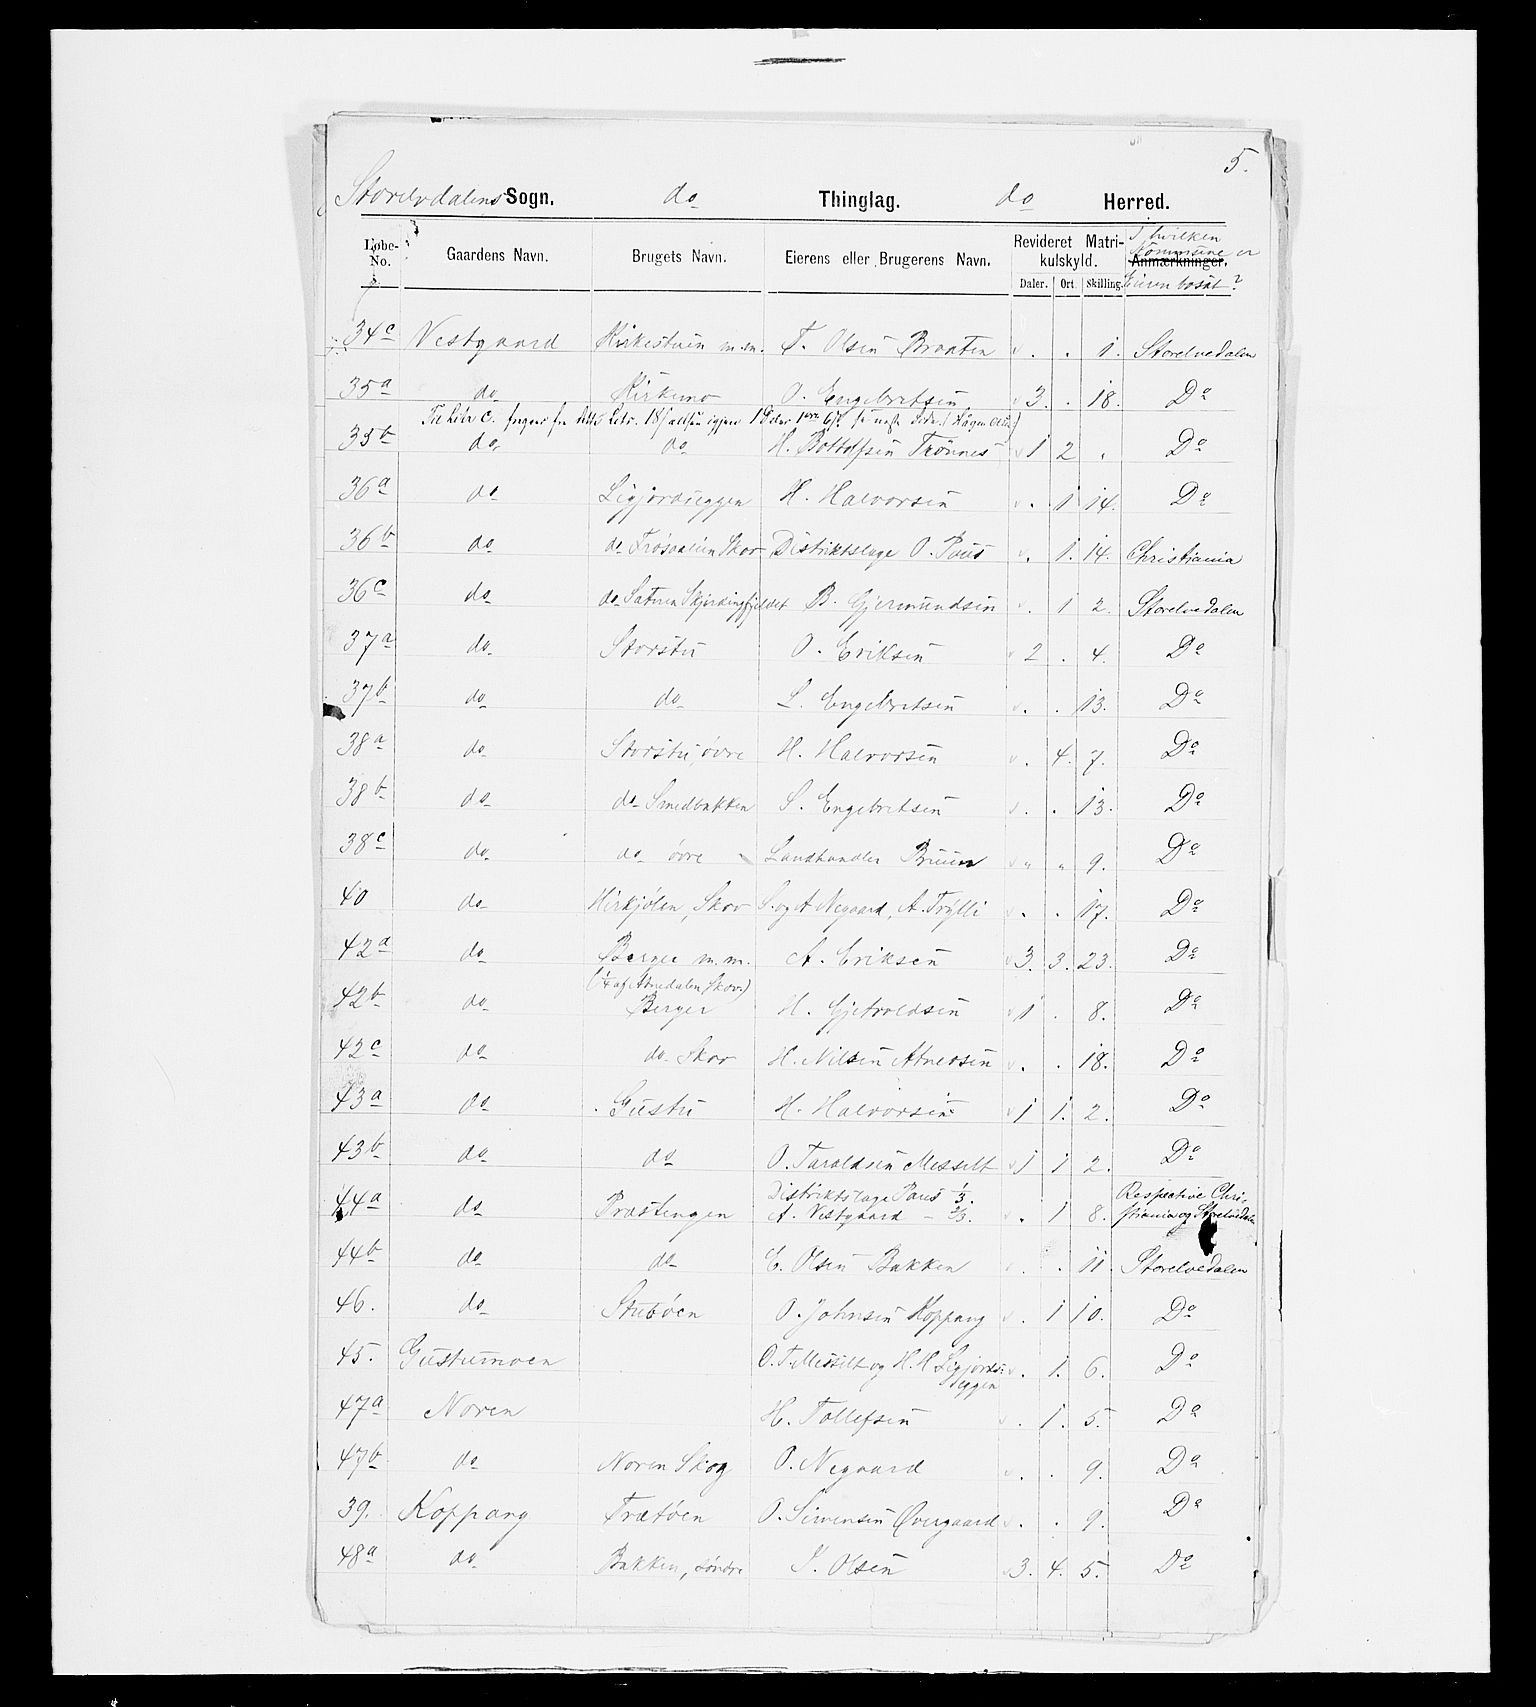 5.
Storelvdalens Sogn. do Thinglag. do Herred.
Løbe-No. Gaardens Navn. Brugets Navn. Eierens eller Brugerens Navn. Revideret Matrikulskyld. Daler. Ort. Skilling. Anmærkninger. I hvilken Kommune er Eieren bosat?
34c Vestgaard Kirkestuen m.m. T. Olsen Braaten . . 1. Storelvedalen
35a do Kirkemo O. Engebretsen 3. . 18. Do
Til Litr c. fra Litr.
35b do do H. Bottolfsen Trønnes 1 2 . Do
36a do Ligjordseggen H. Halvorsen . 1 14. Do
36b do do Skov Distriktslæge O. Paus . 1. 14. Christiania
36c do do Sætren B. Gjermundsen . 1 2. Storelvedalen
37a do Storstu O. Eriksen 2 . 4. Do
37b do do L. Engebretsen . . 13. Do
38a do Storstu, øvre H. Halvorsen . 4. 7. Do
38b do do Smedbakken S. Engebretsen . . 13. Do
38c do do øvre Landhandler Bruun " " 9. Do
40 do Hirkjølen, Skov S. og A Negaard, A. Trylli . . 17. Do
42a do Berger m.m. A. Eriksen 3. 3. 23. Do
(¼ af Atnedalen Skov)
42b do Berger H. Gjetvoldsen 1 . 8. Do
42c do do Skov H. Nilsen Atneosen . . 18. Do
43a do Gustu H. Halvorsen 1 1. 2. Do
43b do do O. Taraldsen Messelt 1 1 2. Do
44a do Præstengen Distriktslæge Paus ⅓. A. Vestgaard – ⅔. . 1 8. Respective Christiania og Storelvedalen
44b do do E. Olsen Bakken . . 11 Storelvedalen
46. do Stubøen O. Johnsen Koppang . 1 10. Do
45. Gustumoen O. T. Messelt og H. H Ligjordseggen . 1. 6. Do
47a Noren H. Tollefsen . 1. 5. Do
47b do Noren Skog P. Negaard . . 9. Do
39. Koppang Trætøen O. Simensen Øvergaard . . 9. Do
48a do Bakken, søndre J. Olsen 3. 4. 5. Do